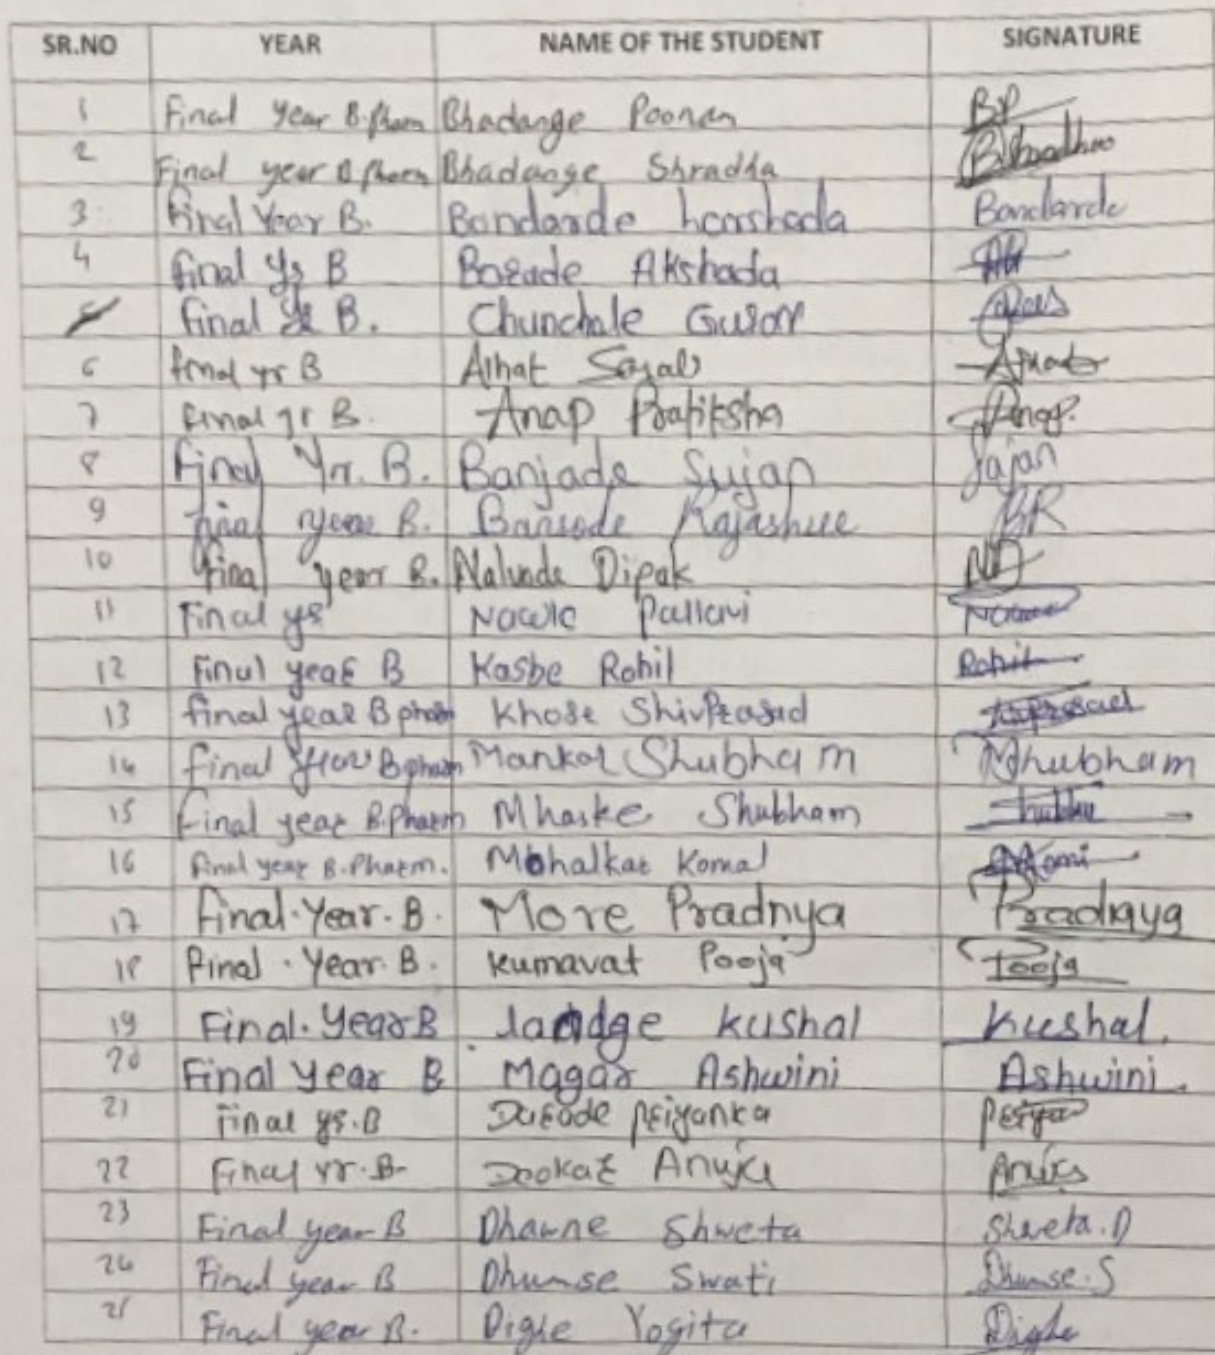 SR.NO YEAR NAME OF THE STUDENT SIGNATURE
1 Final Year B.Pharm Bhadange Poonam BP
2 Final year B pharm Bhadange Shradha BShradha
3 Final Year B. Bandarde harshada Bandarde
4 final yr B Borade Akshada
final yr B. Chunchale Gurav
6 final yr B Alhat Sayali
7 Final yr B. Anap Pratiksha Anap.
8 Final Yr. B. Banjade Sujan Sajan
9 Final year B. Bansode Rajashree BR
10 Final year B. Nalvade Dipak ND
11 Final yr Nawle Pallavi
12 Final year B Kasbe Rohil Rohit
13 final year B pharm Khose ShivPrasad
14 final year B pham Mankar Shubham Mhubham
15 Final year B.Pharm Mhaske Shubham
16 Final year B.Pharm. Mohalkar Komal
17 Final.Year.B. More Pradnya Pradnaya
18 Final.Year.B. Kumavat Pooja Pooja
19 Final.Year B kushal Kushal.
20 Final Year B Magar Ashwini Ashwini.
21 Final yr.B Darade Priyanka Priya
22 Final Yr.B- Deokar Anuja Anuja
23 Final year B Dhawne Shweta Shweta.D
24 Final year B Dhumse Swati Dhumse.S
25 Final year B. Dighe Yogita Dighe